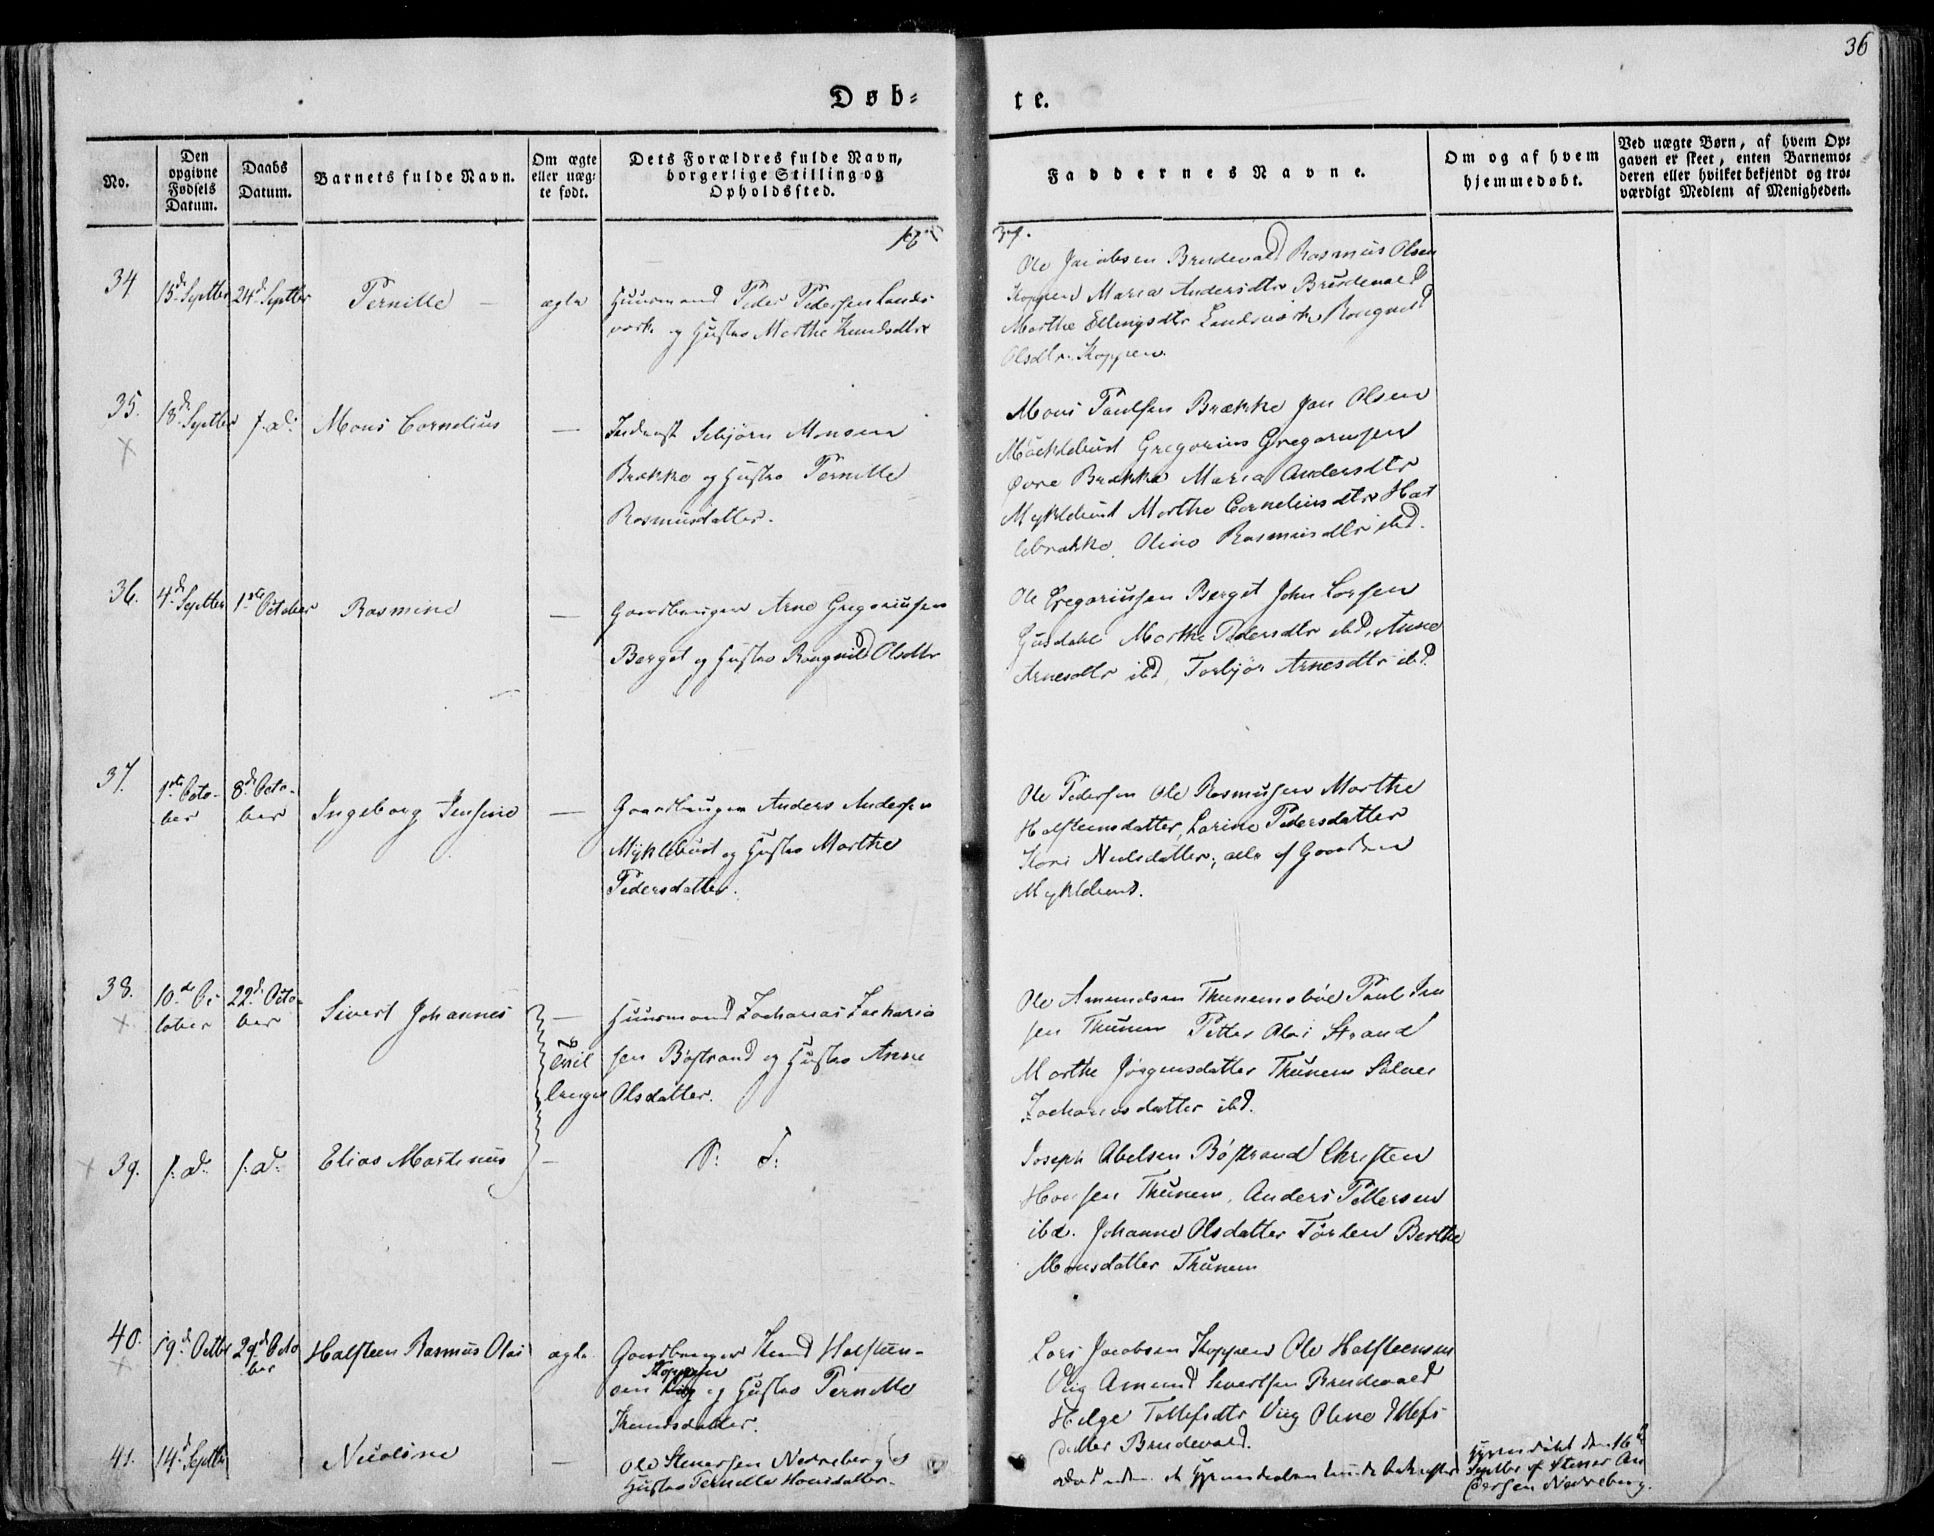 36
Døb=
te.
No.
Den opgivne Fødsels Datum.
Daabs Datum.
Barnets fulde Navn.
Om ægte eller uæg= te født.
Dets Forældres fulde Navn, borgerlige Stilling og Opholdssted.
Faddernes Navne.
Om og af hvem hjemmedøbt.
Ved uægte Børn, af hvem Op= gaven er skeet, enten Barnemo= deren eller hvilket bekjendt og tro= værdigt Medlem af Menigheden.
18
37.
34
15d Septbr
24d Septbr
Pernille
ægte
Huusmand Peder Pedersen Lands-
vark og Hustro Marthe Knudsdtr
Ole Jacobsen Brudevold Rasmus Olsen
Koppen Maria Andersdtr Brudevold
Marthe Ellingsdtr Landsvark Rangnild
Olsdtr Koppen.
35.
18de Septber
s. d.
Mons Cornelius
—
Inderst Sebjørn Monsen
Brække og Hustro Pernille
Rasmusdatter.
Mons Paulsen Brække Jan Olsen
Möcklebust Gregorius Gregoriusen
øvre Brække Maria Andersdtr
Myklebust Marthe Corneliusdtr Hat
lebrække, Oline Rasmusdtr ibd.
36.
4d Septber
1ste October
Rasmine
—
Gaardbruger Arne Gregoriusen
Berget og Hustro Rangnild Olsdtr
Ole Gregoriusen Berget John Larsen
Gusdahl Marthe Pedersdtr ibd, Anne
Arnesdtr ibd, Torbjør Arnesdtr ibd.
37.
1ste Octo-
ber
8de Octo-
ber
Ingeborg Jensine
—
Gaardbruger Anders Andersen
Myklebust og Hustro Marthe
Pedersdatter.
Ole Pedersen Ole Rasmusen Marthe
Halsteensdatter, Larine Pedersdatter
Kari Nielsdatter, alle af Gaarden
Myklebust.
38.
10de Oc-
tober
22d Octo-
ber
Sivert Johannes
—
Tvil
linger
Huusmand Zacharias Zacharia
sen Bøstrand og Hustro Anne
Olsdatter.
Ole Amundsen Thunemsbøe Paul Jen
sen Thunem Petter Olai Strand
Marthe Jørgensdatter Thunem
Zachariasdatter ibd.
39.
s. d.
s. d.
Elias Martinus
—
S: F:
Joseph Abelsen Bøstrand Christen
Hansen Thunem, Anders Pettersen
ibd. Johanne Olsdatter Berthe
Monsdatter Thunem
40.
19d Octbr
29d Octo
ber
Halsteen Rasmus Olai
ægte
Gaardbruger Knud Halsteen-
Koppen
sen Viig og Hustro Pernille
Knudsdatter.
Lars Jacobsen Koppen Ole Halsteensen
Viig Amund Sivertsen Brudevold
Helge Tollefsdtr Viig Oline Ellefs
datter Brudevold.
41.
14d Septbr
Nicoline
—
Ole Steuersen Nedreberg og
Hustro Pernille Hansdatter.
død uden at Hjemmedaaben kunde bekræftes
Hjemmedøbt den 16d
Septbr af Steuer An
dersen Nedreberg.